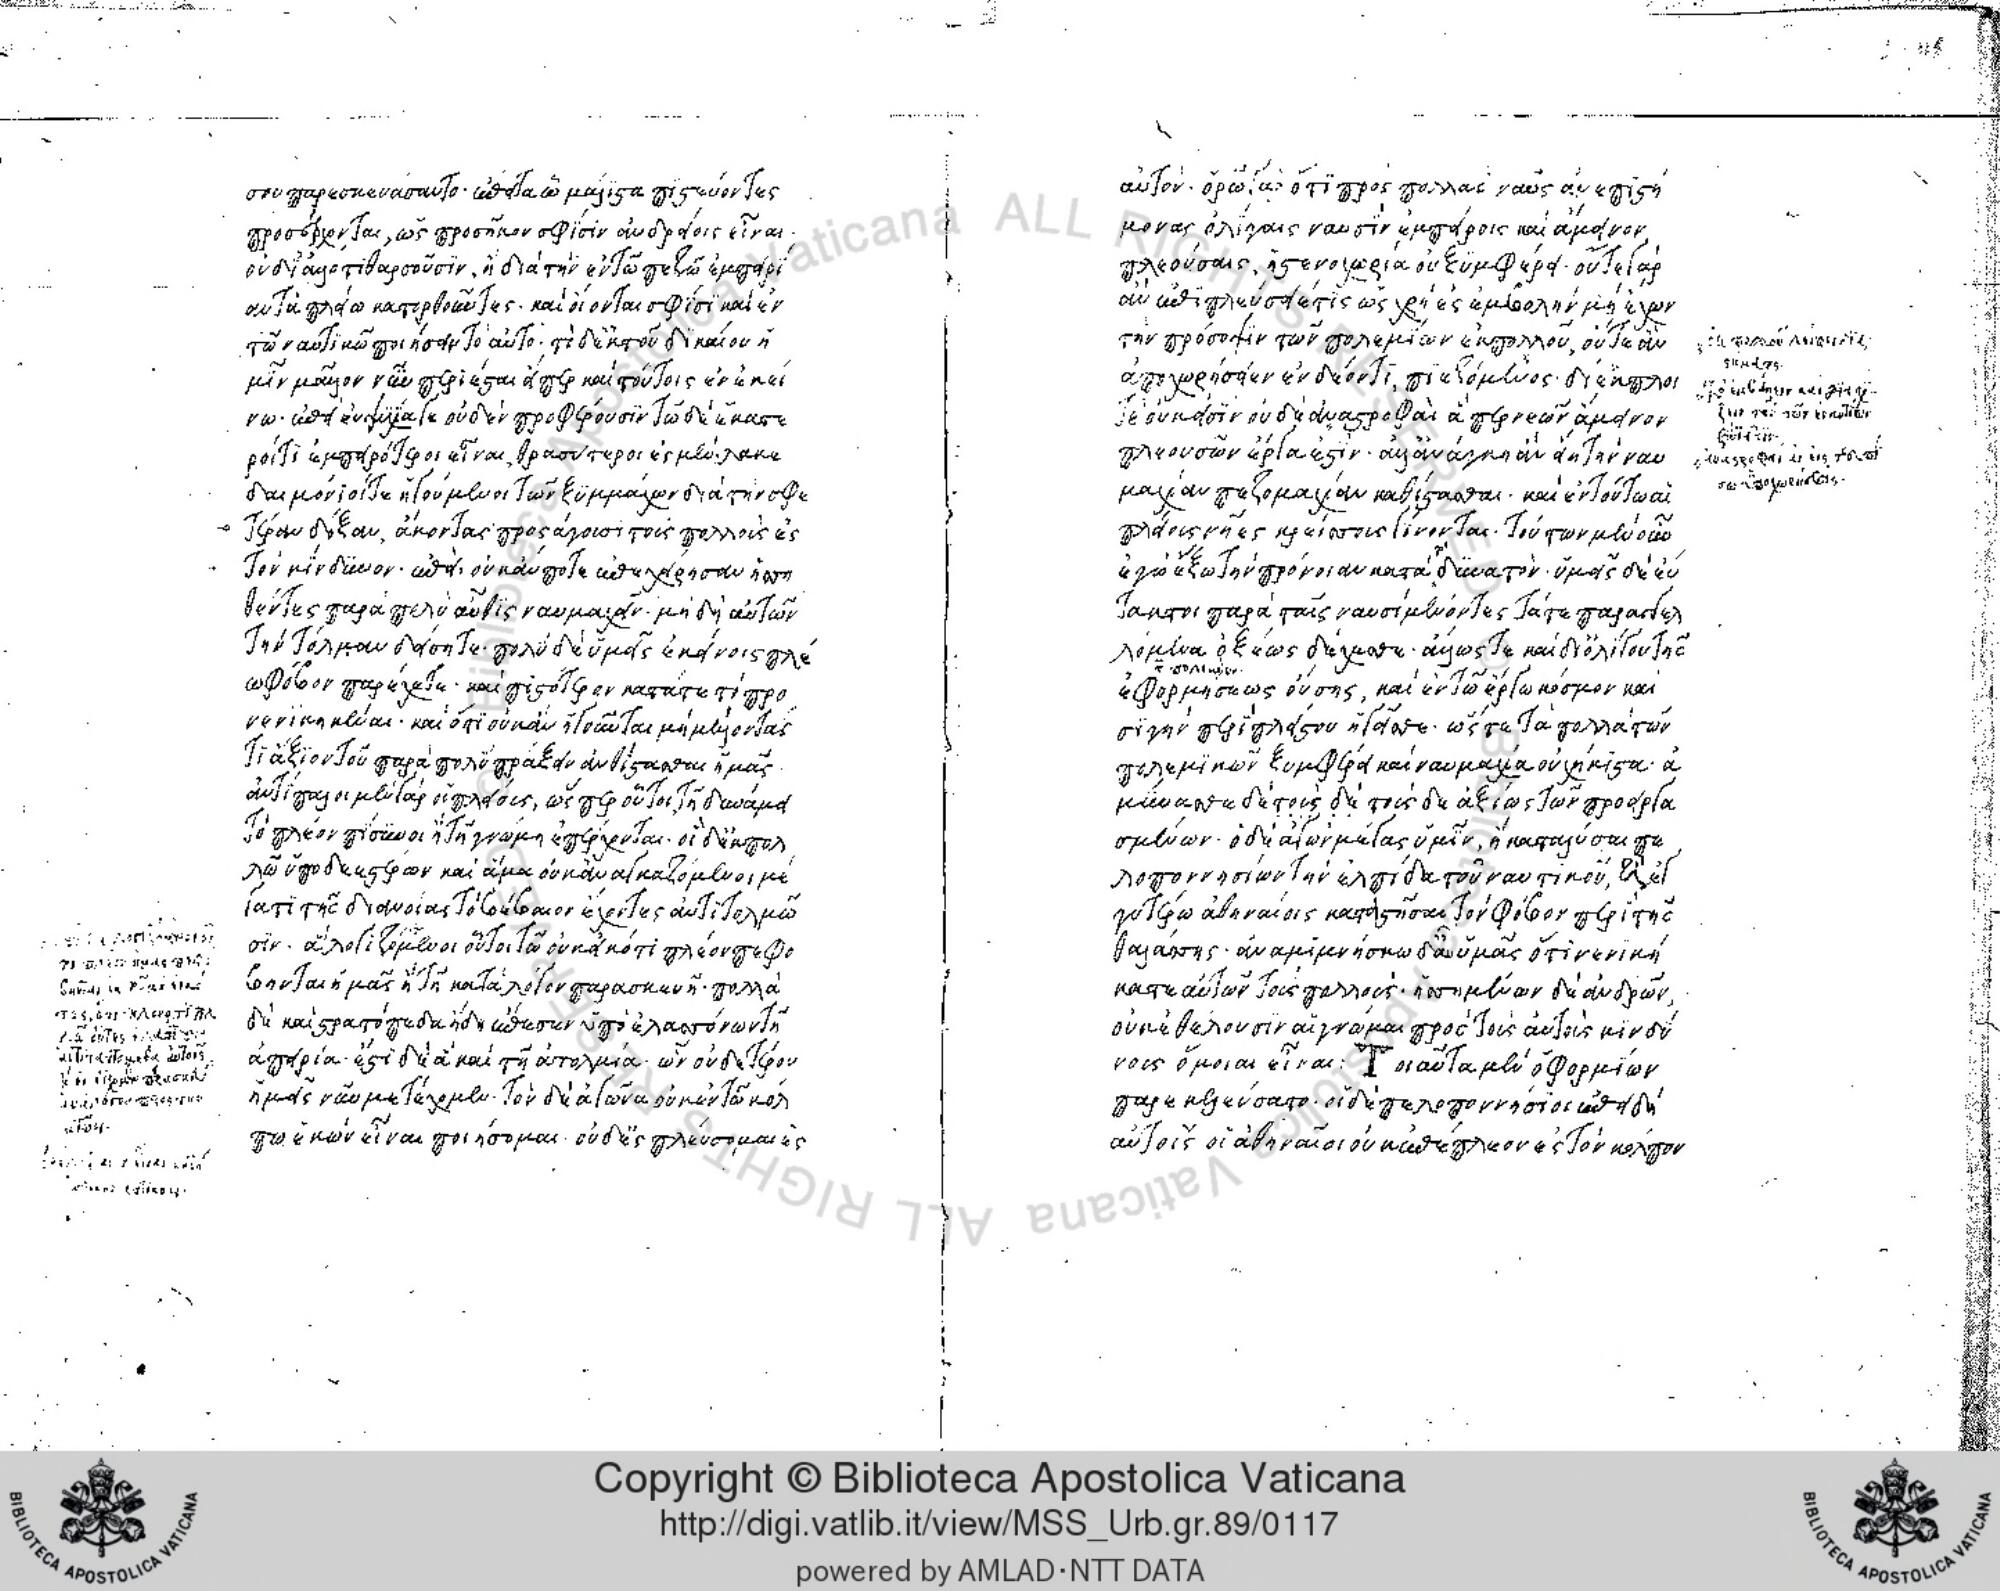 σου παρεσκευάσαντο· ἔπειτα ὧ μάλιστα πιστεύοντες
προσέρχονται, ὡς προσῆκον σφίσιν ἀνδρείοις εἶναι·
οὐ δι' ἄλλο τι θαρσοῦσιν, ἢ διὰ τὴν ἐν τῶ πεζῶ ἐμπειρί
αν τὰ πλείω κατορθοῦντες· καὶ οἴονται σφίσι καὶ ἐν
τῶ ναυτικῶ ποιήσειν τὸ αὐτό· τὸ δ' ἐκ τοῦ δικαίου ἡ
μῖν μᾶλλον νῦν περιέσται εἴπερ καὶ τούτοις ἐν ἐκεί
νω· ἐπεὶ εὐψυχία γε οὐδὲν προφέρουσιν τῶ δὲ ἑκατε
ροί τι ἐμπειρότεροι εἶναι, θρασύτεροι ἐσμέν· λακε
δαιμόνιοί τε ἡγούμενοι τῶν ξυμμάχων διὰ τὴν σφε
τέραν δόξαν, ἄκοντας προσάγουσι τοὺς πολλοὺς ἐς
τὸν κίνδυνον· ἐπεὶ οὐκ ἄν ποτε ἐπεχείρησαν ἡσση
θέντες παρὰ πολὺ αὖθις ναυμαχεῖν· μὴ δὴ αὐτῶν
τὴν τόλμαν δείσητε· πολὺ δὲ ὑμεῖς ἐκείνοις πλεί
ω φόβον παρέχετε· καὶ πιστότερον κατά τε τὸ προ
νενικηκέναι· καὶ ὅτι οὐκ ἂν ἡγοῦνται μὴ μέλλοντάς
τι ἄξιον τοῦ παρὰ πολὺ πράξειν ἀνθίστασθαι ἡμᾶς·
ἀντίπαλοι μὲν γὰρ οἱ πλείους, ὥσπερ οὗτοι, τῆ δυνάμει
τὸ πλέον πίσυνοι ἢ τῆ γνώμη ἐπέρχονται· οἱ δ' ἐκ πολ
λῶ ὑποδεεστέρων καὶ ἅμα οὐκ ἀναγκαζόμενοι μέ
γα τι τῆς διανοίας τὸ βέβαιον ἔχοντες ἀντιτολμῶ
σιν· ἃ λογιζόμενοι οὗτοι τῶ οὐκ εἰκότι πλέον πεφό
βηνται ἡμᾶς ἢ τῆ κατὰ λόγον παρασκευῆ· πολλὰ
δὲ καὶ στρατόπεδα ἤδη ἔπεσεν ὑπ' ἐλασσόνων τῆ
ἀπειρία· ἔστι δὲ ἃ καὶ τῆ ἀτολμία· ὧν οὐδετέρου
ἡμεῖς νῦν μετέχομεν· τὸν δὲ ἀγῶνα οὐκ ἐν τῶ κόλ
πω ἑκὼν εἶναι ποιήσομαι· οὐδ' ἐσπλεύσομαι ἐς
αὐτόν· ὁρῶ γὰρ ὅτι πρὸς πολλὰς ναῦς ἀνεπιστή
μονας ὀλίγαις ναυσὶν ἐμπείροις καὶ ἄμεινον
πλεούσαις, ἡ στενοχωρία οὐ ξυμφέρει· οὔτε γὰρ
ἂν ἐπιπλεύσειέ τις ὡς χρὴ ἐς ἐμβολὴν μὴ ἔχων
τὴν πρόσοψιν τῶν πολεμίων ἐκ πολλοῦ, οὔτε ἂν
ἀποχωρήσειεν ἐν δέοντι, πιεζόμενος· διέκπλοι
τε οὐκ εἰσὶν οὐδὲ ἀναστροφαὶ ἅπερ νεῶν ἄμεινον
πλεουσῶν ἔργα ἐστίν· ἀλλ' ἀνάγκη ἂν εἴη τὴν ναυ
μαχίαν πεζομαχίαν καθίστασθαι· καὶ ἐν τούτω αἱ
πλείους νῆες κρείσσους γίνονται· τούτων μὲν οὖν
ἐγὼ ἕξω τὴν πρόνοιαν κατὰ τὸ δυνατόν· ὑμεῖς δὲ εὔ
τακτοι παρὰ ταῖς ναυσὶ μένοντες τά τε παραγγελ
λόμενα ὀξέως δέχεσθε· ἄλλως τε καὶ δι' ὀλίγου τῆς
ἐφορμήσεως οὔσης, καὶ ἐν τῶ ἔργω κόσμον καὶ
σιγὴν περὶ πλείστου ἡγεῖσθε· ὡς τε τὰ πολλὰ τῶν
πολεμικῶν ξυμφέρει καὶ ναυμαχία οὐχ ἥκιστα· ἀ
μύνασθε δὲ τούσδε τοὺς δὲ ἀξίως τῶν προειργα
σμένων· ὁ δὲ ἀγὼν μέγας ὑμῖν, ἢ καταλῦσαι πε
λοποννησίων τὴν ἐλπίδα τοῦ ναυτικοῦ, ἢ ἐγ
γυτέρω ἀθηναίοις καταστῆσαι τὸν φόβον περὶ τῆς
θαλάσσης· ἀναμιμνήσκω δ' αὖ ὑμᾶς ὅτι νενική
κατε αὐτῶν τοὺς πολλούς· ἡσσημένων δὲ ἀνδρῶν,
οὐκ ἐθέλουσιν αἱ γνῶμαι πρὸς τοὺς αὐτοὺς κινδύ
νους ὅμοιαι εἶναι: Τοιαῦτα μὲν ὁ φορμίων
παρεκελεύσατο· οἱ δὲ πελοποννήσιοι ἐπειδὴ
αὐτοῖς οἱ ἀθηναῖοι οὐκ ἐπέπλεον ἐς τὸν κόλπον
Copyright © Biblioteca Apostolica Vaticana
http://digi.vatlib.it/view/MSS_Urb.gr.89/0117
powered by AMLAD·NTT DATA